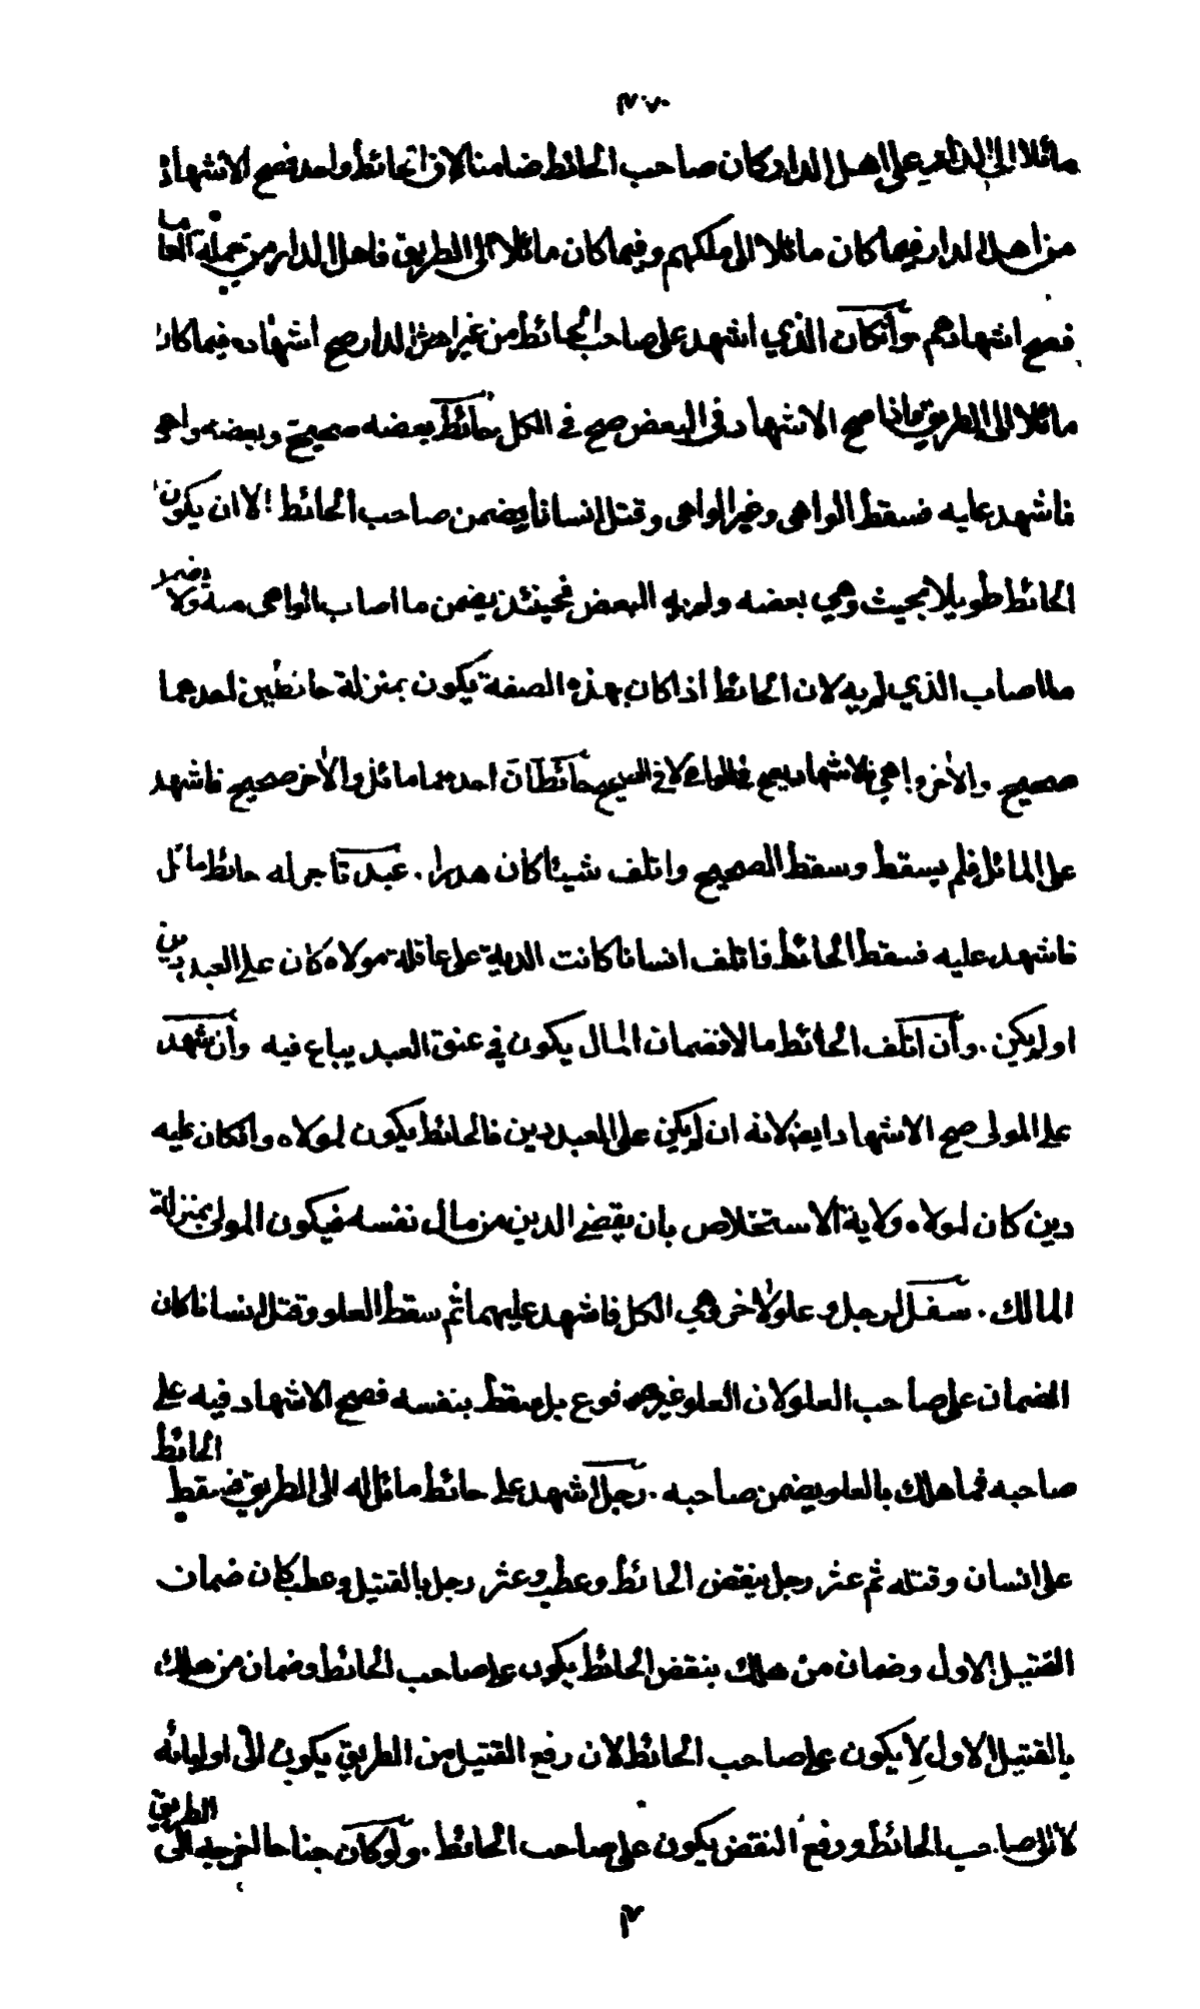 ٣٠٧٠
مائلا الى الدار فيه على اهل الدار كان صاحب الحائط ضامنا لان الحائط واحد فصح الاشهاد
من اهل الدار فيما كان مائلا الى ملكهم وفيما كان مائلا الى الطريق فاهل الدار من جملة العامة
فصح اشهادهم وانكان الذي اشهد على صاحب الحائط من غير اهل الدار صح اشهاده فيما كان
مائلا الى الطريق واذا صح الاشهاد في البعض صح في الكل حائط بعضه صحيح وبعضه واهي
فاشهد عليه فسقط الواهي وغير الواهي وقتل انسانا يضمن صاحب الحائط الا ان يكون
الحائط طويلا بحيث وهي بعضه ولم يه البعض فحينئذ يضمن ما اصاب بالواهي منه ولا يضمن
ما اصاب الذي لم يه لان الحائط اذا كان بهذه الصفة يكون بمنزلة حائطين احدهما
صحيح والاخر واهي فالاشهاد يصح في الواهي لا في الصحيح حائطان احدهما مائل والاخر صحيح فاشهد
على المائل فلم يسقط وسقط الصحيح واتلف شيئا كان هدرا . عبد تاجر له حائط مائل
فاشهد عليه فسقط الحائط فاتلف انسانا كانت الدية على عاقلة مولاه كان على العبد دين
او لم يكن . وان اتلف الحائط مالا فضمان المال يكون في عنق العبد يباع فيه وان شهد
على المولى صح الاشهاد ايضا لانه ان لم يكن على العبد دين فالحائط يكون لمولاه وانكان عليه
دين كان لمولاه ولاية الاستخلاص بان يقضي الدين من مال نفسه فيكون المولى بمنزلة
المالك . سفل لرجل وعلو لاخر وهي الكل فاشهد عليهما ثم سقط العلو وقتل انسانا كان
الضمان على صاحب العلو لان العلو غير مدفوع بل سقط بنفسه فصح الاشهاد فيه على
صاحبه فما هلك بالعلو يضمن صاحبه . رجل اشهد على حائط مائل له الى الطريق فسقط الحائط
على انسان وقتله ثم عثر رجل بنقض الحائط وعطب وعثر رجل بالقتيل وعطب كان ضمان
القتيل الاول وضمان من هلك بنقض الحائط يكون على صاحب الحائط وضمان من هلك
بالقتيل الاول لا يكون على صاحب الحائط لان رفع القتيل من الطريق يكون الى اوليائه
لا الى صاحب الحائط ورفع النقض يكون على صاحب الحائط . ولو كان جناحا اخرجه الى الطريق
٣